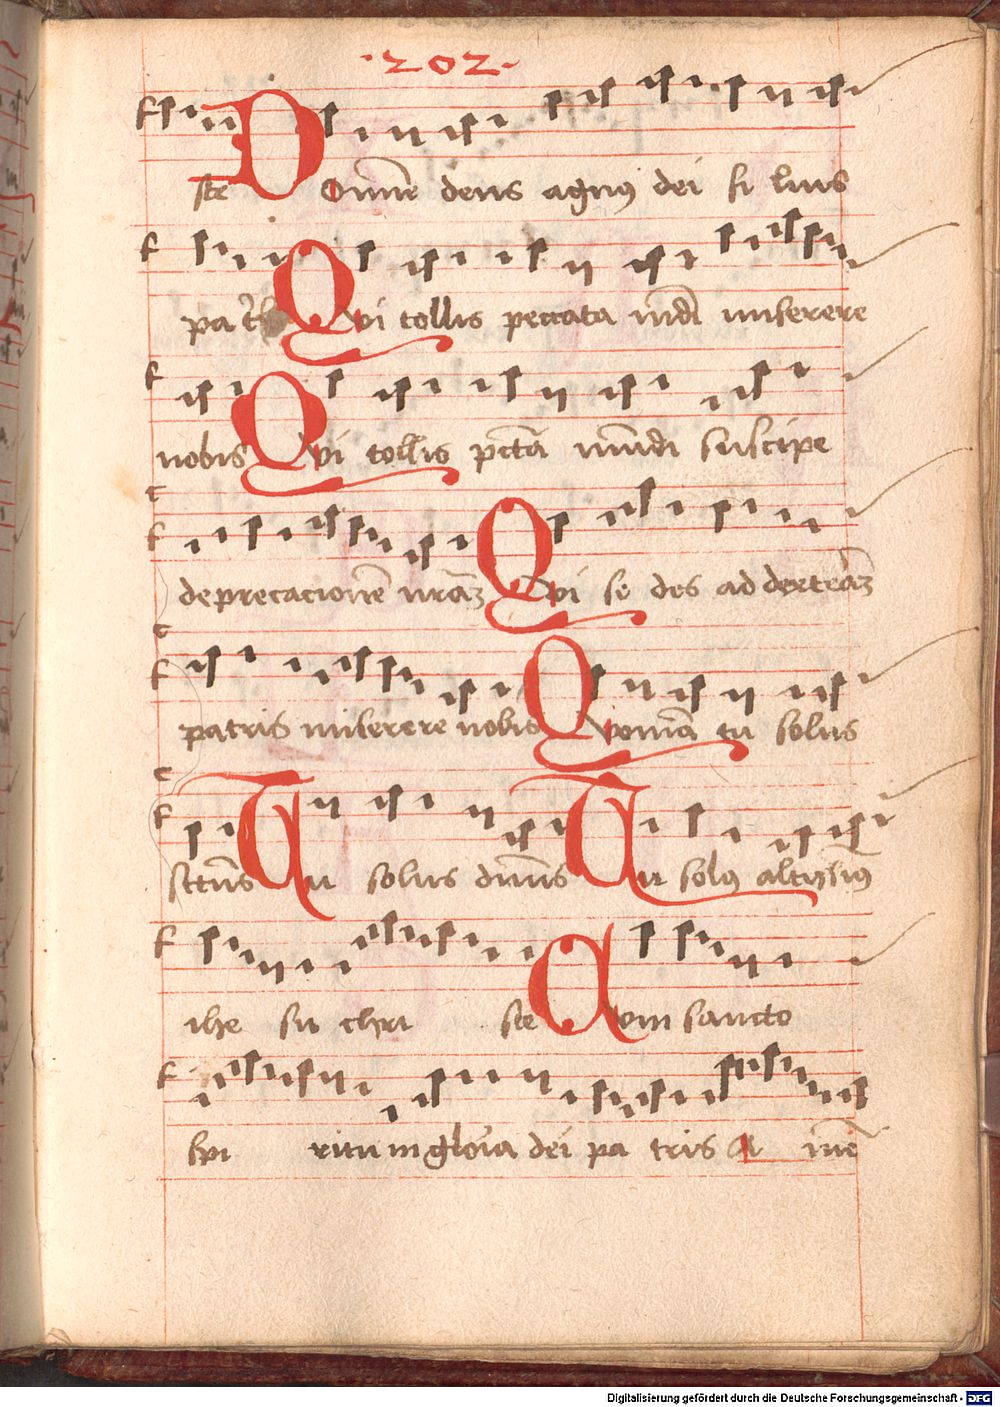 ·202·
ste Domine deus agnus dei fi lius
pa tris Qvi tollis peccata mūdi miserere
nobis Qvi tollis pctā mūndi suscipe
deprecacionē nrāʒ Qvi se des ad dexterāʒ
patris miserere nobis Qvoniā tu solus
sctūs Tu solus dn̄us Tu solus altissimus
ihe su chri ste Cvm sancto
spi ritu in gloīa dei pa tris A mē
Digitalisierung gefördert durch die Deutsche Forschungsgemeinschaft - DFG